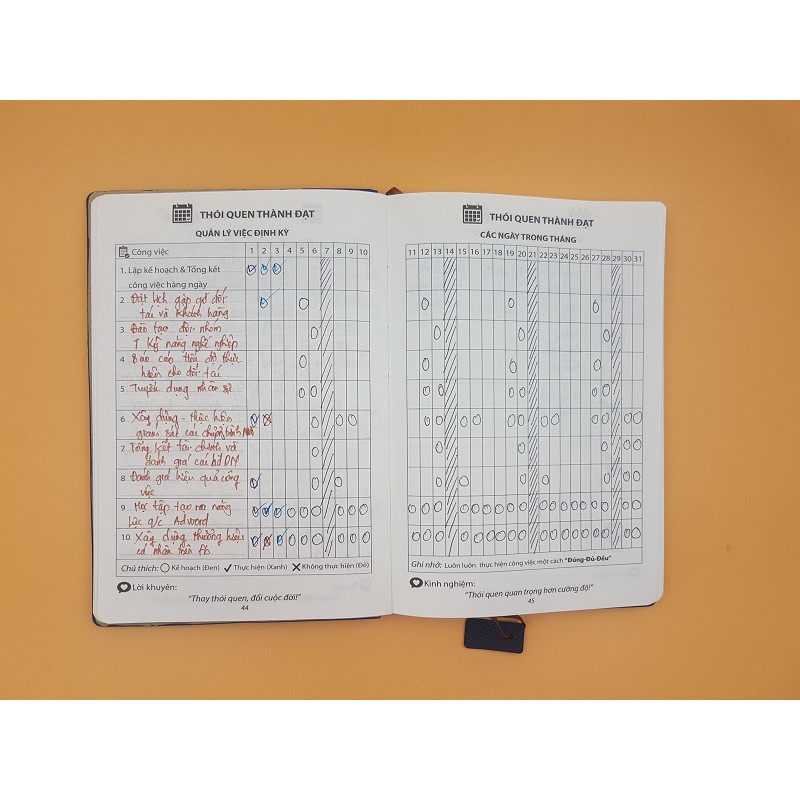 THÓI QUEN THÀNH ĐẠT
QUẢN LÝ VIỆC ĐỊNH KỲ
Công việc 1 2 3 4 5 6 7 8 9 10
1. Lập kế hoạch & Tổng kết
công việc hàng ngày
2 Đặt lịch gặp gỡ đối
tác và khách hàng
3 Đào tạo đội nhóm
Kỹ năng nghề nghiệp
4 Báo cáo tiến độ thực
hiện cho đối tác
5 Tuyển dụng nhân sự
6 Xây dựng - thực hiện
giám sát các
7 Tổng kết tài chính và
đánh giá các hđ DN
8 Đánh giá hiệu quả công
việc
9 Học tập tạo ra năng
lực q/c Adword
10 Xây dựng thương hiệu
cá nhân trên Fb
Chú thích: Kế hoạch (Đen) Thực hiện (Xanh) Không thực hiện (Đỏ)
Lời khuyên:
"Thay thói quen, đổi cuộc đời!"
44
THÓI QUEN THÀNH ĐẠT
CÁC NGÀY TRONG THÁNG
11 12 13 14 15 16 17 18 19 20 21 22 23 24 25 26 27 28 29 30 31
Ghi nhớ: Luôn luôn thực hiện công việc một cách "Đúng-Đủ-Đều"
Kinh nghiệm:
"Thói quen quan trọng hơn cường độ!"
45